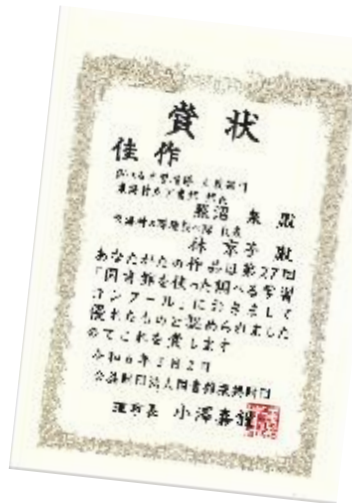 賞状
佳作
熊沼 泉 殿
代表
林 京子 殿
あなたがたの作品は第27回
「図書館を使った調べる学習
コンクール」におきまして
優れたものと認められました
のでこれを賞します
令和6年3月2日
公益財団法人図書館振興財団
理事長 小澤嘉謹